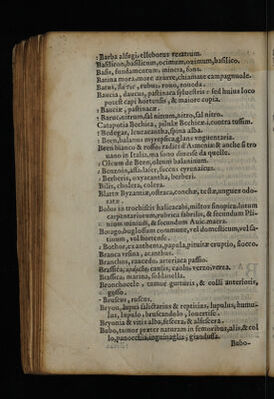 : Barba alfegi, elleborus veratrum.
Basilicon, basilicum, ocimum, ozimum, basilico.
Basis, fundamentum, minera, sons.
Batina mora, more azurre, chiamate campagnuole.
Batus, rubus, rouo, roueda.
Baucia, daucus, pastinaca syluestris: sed huius loco
potest capi hortensis, & maiore copia.
: Bauciæ, pastinace.
: Baruc, nitrum, sal nitrum, nitro, sal nitro.
Catapotia Bechica, pilulæ Bechicæ, contra tussim.
: Bedegar, leucacantha, spina alba.
: Been, balanus myrepsica, glans vnguentaria.
Been bianco & rosso, radici d'Armenia & anche si tro
uano in Italia, ma sono diuerse da quelle.
: Oleum de Been, oleum balaninum.
: Benzoin, assa, laser, succus cyrenaicus.
: Berberis, oxyacantha, berberi.
Bilis, cholera, colera.
: Blatte Byzantiæ, ostraca, conchæ, teste, unguet odo-
ratæ.
Bolus in trochistis halicacabi, militos sinopica, bitum
carpentariorum, rubrica fabrilis, & secundum Plii
nium minium, & secundum Auic. macra.
Borago, buglossum commune, vel domesticum, vel sa-
tiuum, vel hortense.
: Bothor, exanthema, papula, pituitæ eruptio, succo.
Branca vrsina, acanthus.
Branchus, raucedo, arteriaca passio.
Brassica, caulis, caolus, verzo, verza.
: Brassica, marina, soldanella.
: Bronchocele, tumor gutturis, & colli anterioris,
gosso.
: Bruscus, ruscus.
Bryon, lupus salictarius & reptitius, lupulus, humu-
lus, lupulo, bruscandolo, louertise.
Bryonia & vitis alba, &
Bubo, tumor præter naturam in femoribus, alis, & col
lo, panocchia, inguinaglia; giandussa.
Bubo-